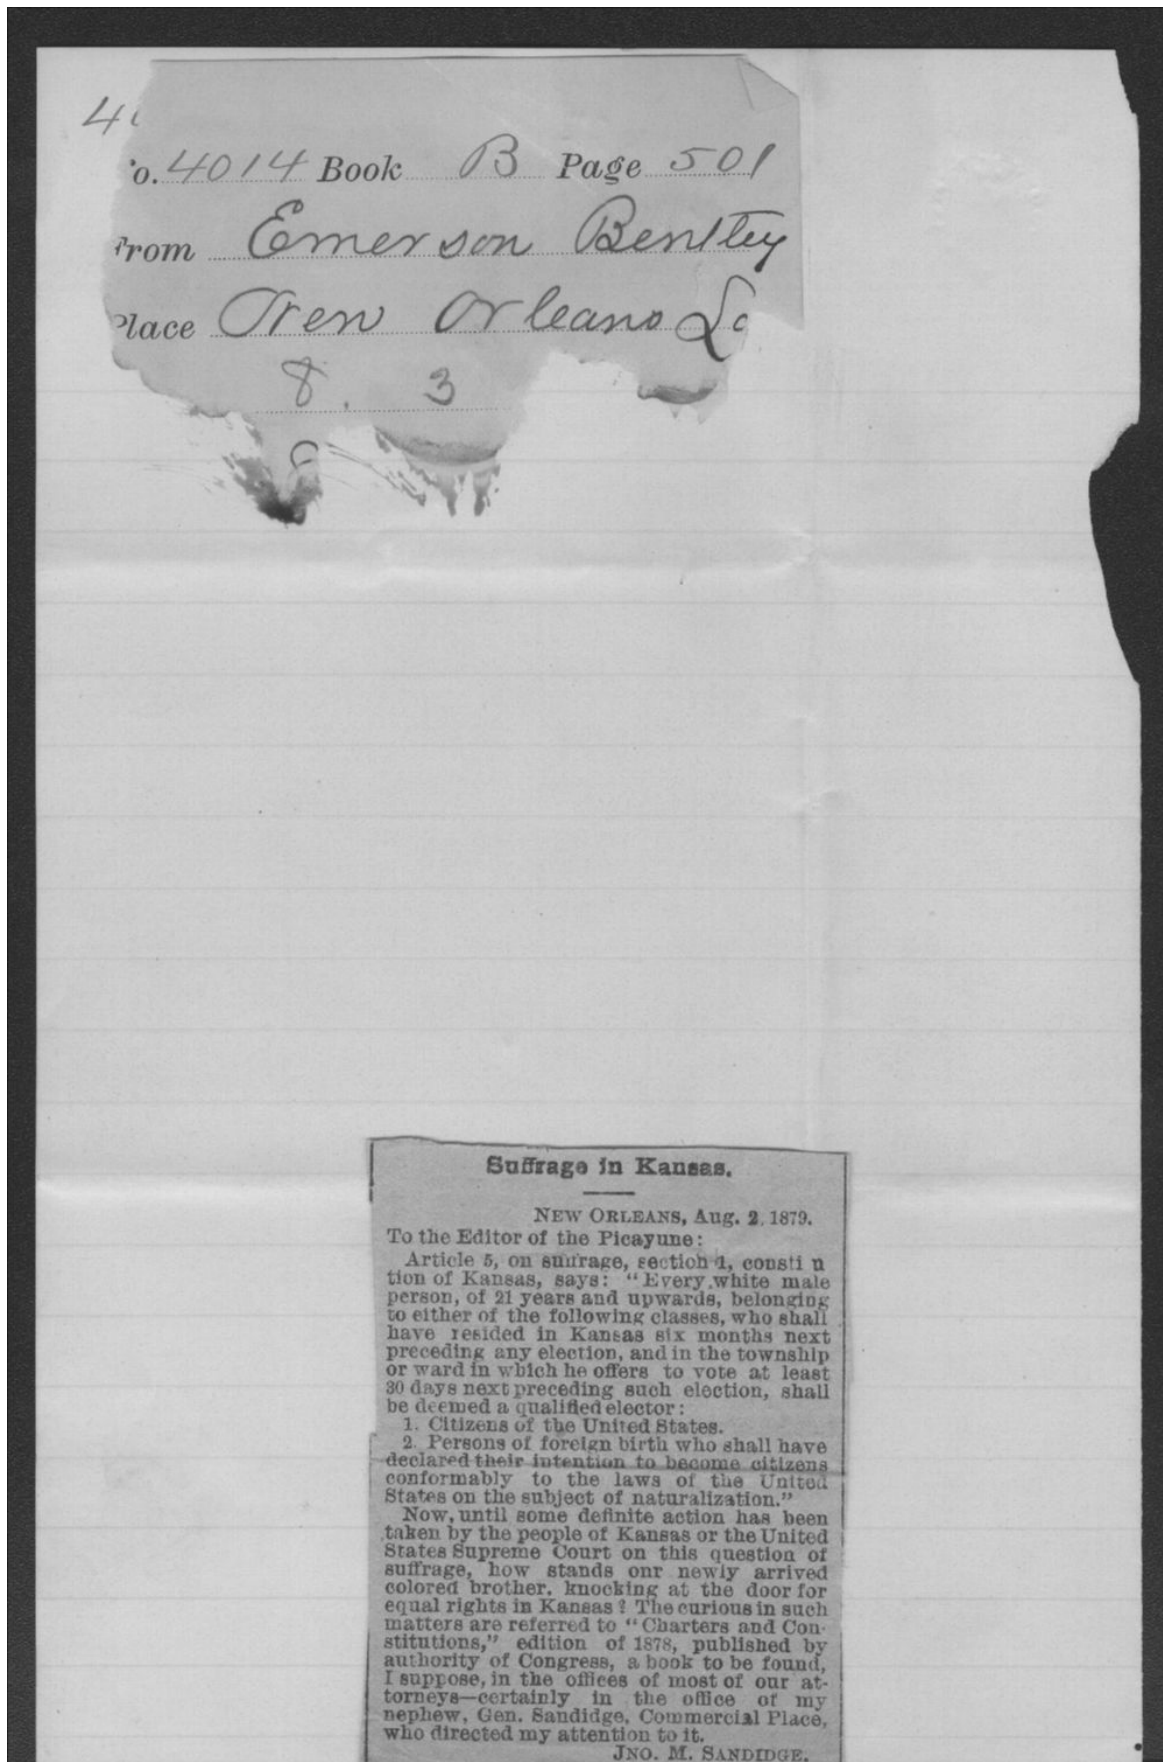 4
o. 4014 Book B Page 501
From Emerson Bentley
Place New Orleans La
8. 3
Suffrage in Kansas.
NEW ORLEANS, Aug. 2, 1879.
To the Editor of the Picayune:
Article 5, on suffrage, section 1, consti u
tion of Kansas, says: "Every white male
person, of 21 years and upwards, belonging
to either of the following classes, who shall
have resided in Kansas six months next
preceding any election, and in the township
or ward in which he offers to vote at least
30 days next preceding such election, shall
be deemed a qualified elector:
1. Citizens of the United States.
2. Persons of foreign birth who shall have
declared their intention to become citizens
conformably to the laws of the United
States on the subject of naturalization."
Now, until some definite action has been
taken by the people of Kansas or the United
States Supreme Court on this question of
suffrage, how stands onr newly arrived
colored brother, knocking at the door for
equal rights in Kansas? The curious in such
matters are referred to "Charters and Con-
stitutions," edition of 1878, published by
authority of Congress, a book to be found,
I suppose, in the offices of most of our at-
torneys—certainly in the office of my
nephew, Gen. Sandidge, Commercial Place,
who directed my attention to it.
JNO. M. SANDIDGE.